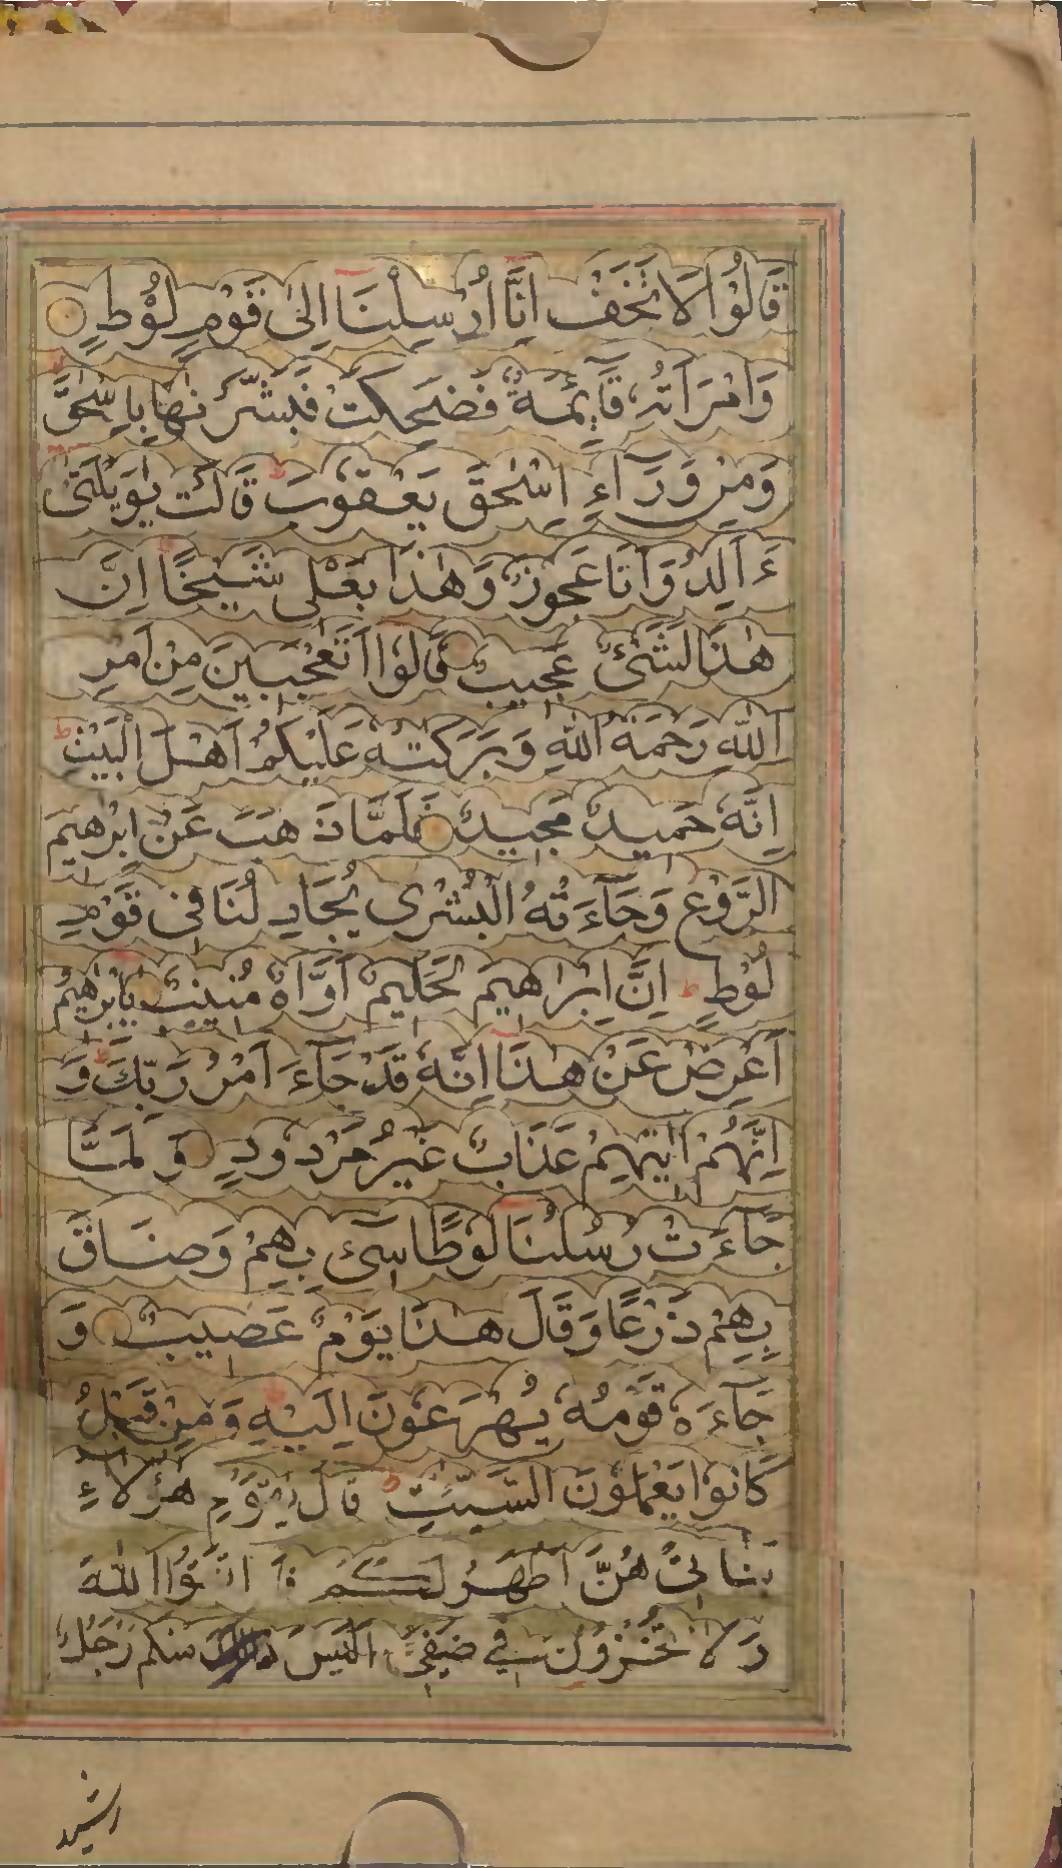 قَالُوْا لَا تَخَفْ اِنَّا اُرْسِلْنَا اِلٰى قَوْمِ لُوْطٍ
وَامْرَاَتُهٗ قَآئِمَةٌ فَضَحِكَتْ فَبَشَّرْنٰهَا بِاِسْحٰقَ
وَمِنْ وَّرَآءِ اِسْحٰقَ يَعْقُوْبَ ط قَالَتْ يٰوَيْلَتٰى
ءَاَلِدُ وَاَنَا عَجُوْزٌ وَّهٰذَا بَعْلِى شَيْخًا اِنَّ
هٰذَا لَشَىْءٌ عَجِيْبٌ قَالُوْا اَتَعْجَبِيْنَ مِنْ اَمْرِ
اللّٰهِ رَحْمَةُ اللّٰهِ وَبَرَكٰتُهٗ عَلَيْكُمْ اَهْلَ الْبَيْتِ ط
اِنَّهٗ حَمِيْدٌ مَّجِيْدٌ فَلَمَّا ذَهَبَ عَنْ اِبْرٰهِيْمَ
الرَّوْعُ وَجَآءَتْهُ الْبُشْرٰى يُجَادِلُنَا فِى قَوْمِ
لُوْطٍ ط اِنَّ اِبْرَاهِيْمَ لَحَلِيْمٌ اَوَّاهٌ مُّنِيْبٌ يٰاِبْرٰهِيْمُ
اَعْرِضْ عَنْ هٰذَا اِنَّهٗ قَدْ جَآءَ اَمْرُ رَبِّكَ ط وَ
اِنَّهُمْ اٰتِيْهِمْ عَذَابٌ غَيْرُ مَرْدُوْدٍ وَلَمَّا
جَآءَتْ رُسُلُنَا لُوْطًا سِىْٓءَ بِهِمْ وَضَاقَ
بِهِمْ ذَرْعًا وَّقَالَ هٰذَا يَوْمٌ عَصِيْبٌ وَ
جَآءَهٗ قَوْمُهٗ يُهْرَعُوْنَ اِلَيْهِ وَمِنْ قَبْلُ
كَانُوْا يَعْمَلُوْنَ السَّيِّئٰتِ ط قَالَ يٰقَوْمِ هٰؤُلَآءِ
بَنَاتِىْ هُنَّ اَطْهَرُ لَكُمْ فَاتَّقُوا اللّٰهَ
وَلَا تُخْزُوْنِ فِىْ ضَيْفِىْ اَلَيْسَ مِنْكُمْ رَجُلٌ
رشيد